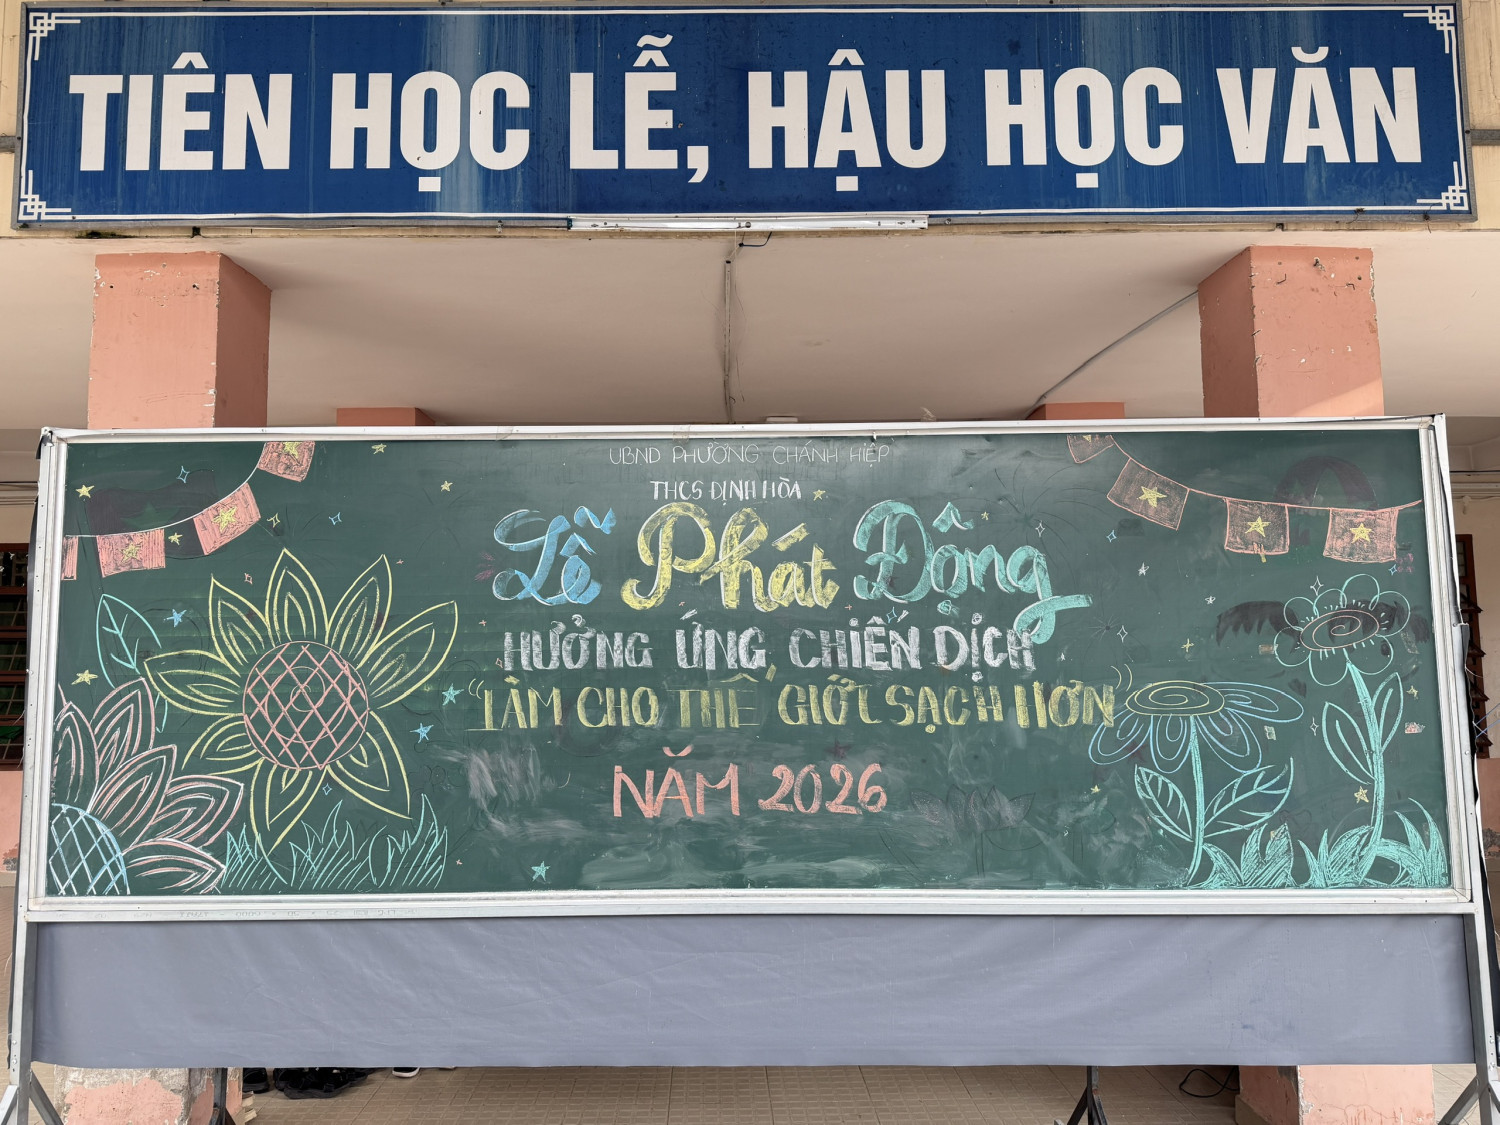 TIÊN HỌC LỄ, HẬU HỌC VĂN
UBND PHƯỜNG CHÁNH HIỆP
THCS ĐỊNH HÒA
Lễ Phát Động
HƯỞNG ỨNG CHIẾN DỊCH
"LÀM CHO THẾ GIỚI SẠCH HƠN"
NĂM 2026